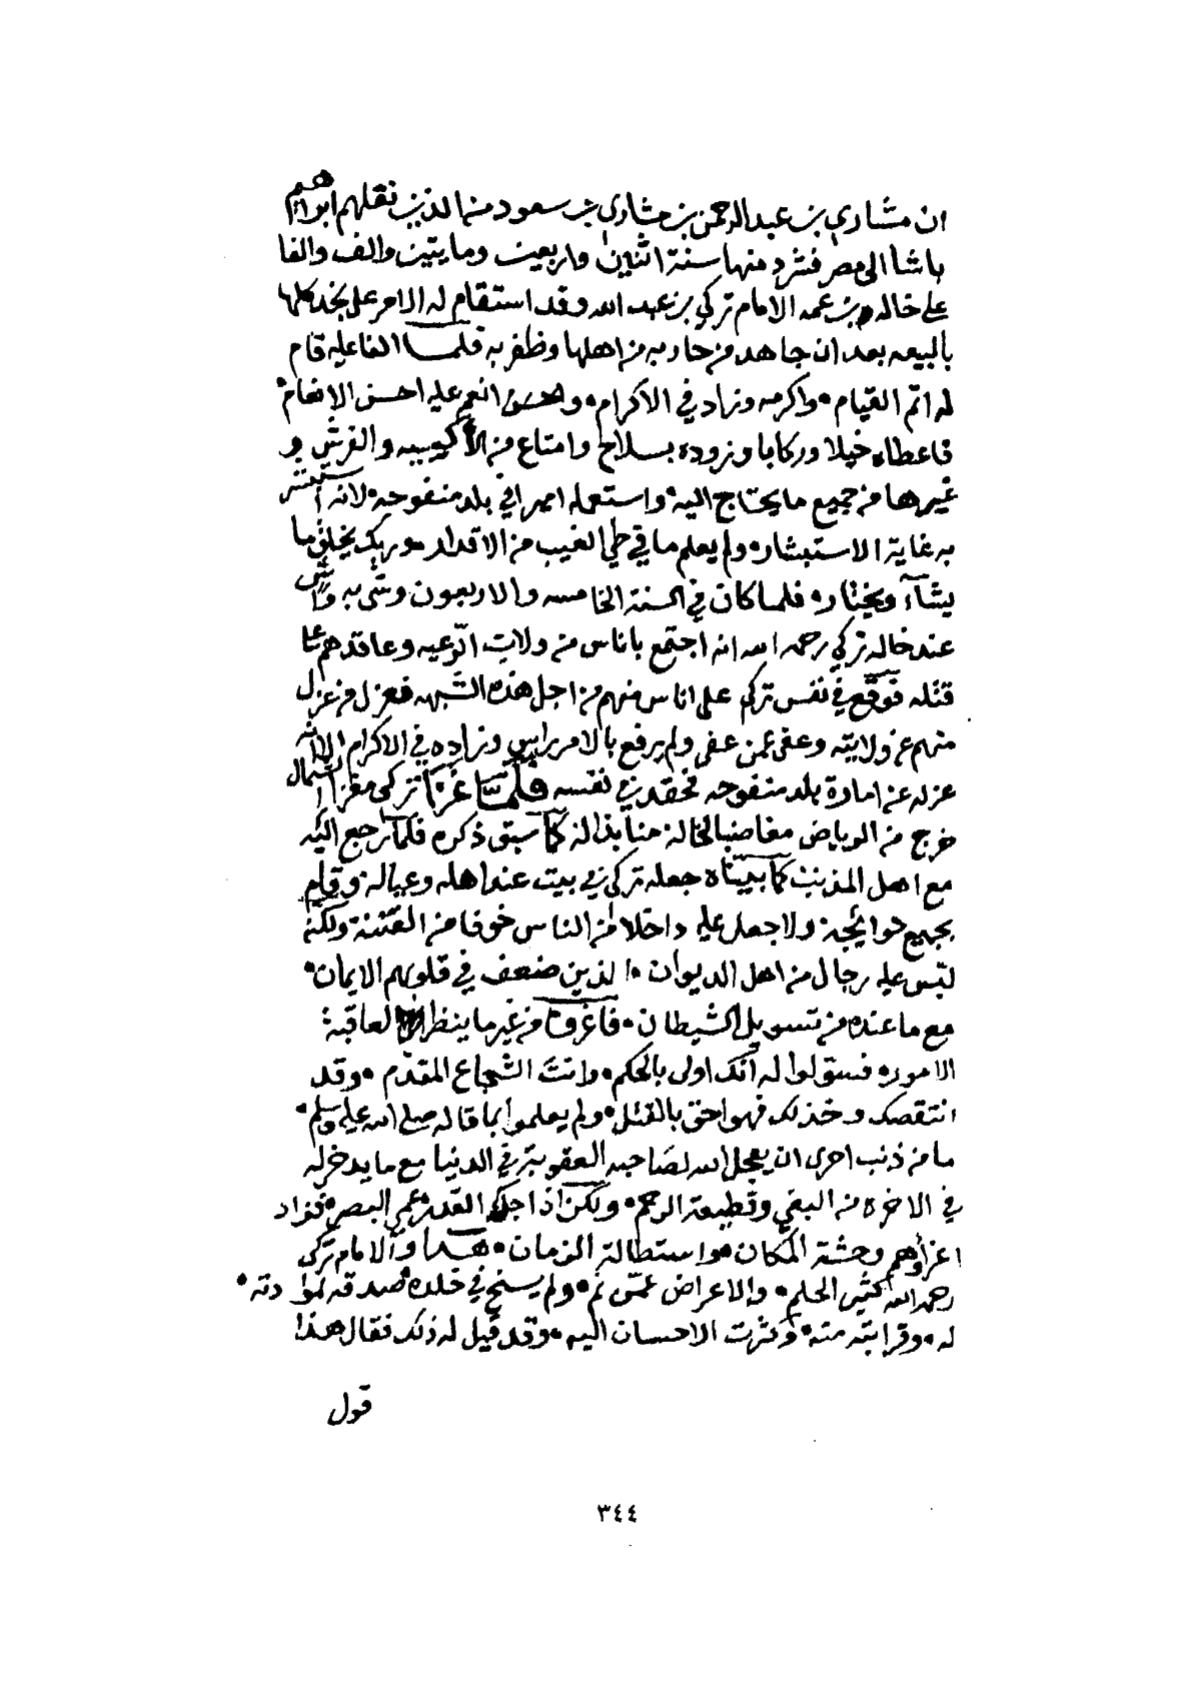 ان مشاري بن عبدالرحمن بن مشاري بن سعود من الذين نقلهم ابراهيم
باشا الى مصر فشرد منها سنة اثنين واربعين ومايتين والف والفا
على خاله وبن عمه الامام تركي بن عبد الله وقد استقام له الامر على نجد كلها
بالبيعه بعد ان جاهد من حاربه من اهلها وظفر به فلما الفا عليه قام
له اتم القيام • واكرمه وزاد في الاكرام • و انعم عليه احسن الانعام •
فاعطاه خيلا وركابا وزوده بسلاح وامتاع من الاكويبه والفرش و
غيرها من جميع ما يحتاج اليه • واستعمله اميرا في بلد منفوحه • لانه استبشر
به غاية الاستبشار • ولم يعلم ما في طي الغيب من الاقدار • وربك يخلق ما
يشآء ويختار • فلما كان في السنة الخامسه والاربعون وشى به واش
عند خاله تركي رحمه الله انه اجتمع باناس من ولات الرّعيه وعاقدهم على
قتله فوقع في نفس تركي على اناس منهم من اجل هذه الشبهه فعزل من عزل
منهم عن ولايته وعفى عمن عفى ولم يرفع بالامر براس وزاده في الاكرام الا انه
عزله عن امارة بلد منفوحه فحقد في نفسه فلمّا غزا تركي مغزا الشمال
خرج من الرياض مغاضبا لخاله منابذا له كما سبق ذكره فلما رجع اليه
مع اهل المذنب كما بيناه جعله تركي في بيت عند اهله وعياله • وقام
بجميع حوائجه • ولا جعل عليه داخلا من الناس خوفا من الفتنة ولكنه
لبّس عليه رجال من اهل الديوان • الذين ضعف في قلوبهم الايمان •
مع ما عنده من تسويل الشيطان • فاغروه من غير ما ينظر لعاقبة
الامور • فسولوا له انك اولى بالحكم • وانت الشجاع المقدّم • وقد
انتقصك وخذلك فهو احق بالقتل • ولم يعلموا بما قاله صلى الله عليه وسلم •
ما من ذنب احرى ان يعجل الله لصاحبه العقوبة في الدنيا مع ما يدخر له
في الاخره من البغي وقطيعة الرحم • ولكن اذا جاء القدر عمي البصر • فزاد
اغراؤهم وحشة المكان • واستطالة الزمان • هذا والامام تركي
رحمه الله كثير الحلم • والاعراض عمّن نم • ولم يسنح في خلده صدقه لموادته •
له • وقرابته منه • وكثرت الاحسان اليه • وقد قيل له ذلك فقال هذا
قول
٣٤٤